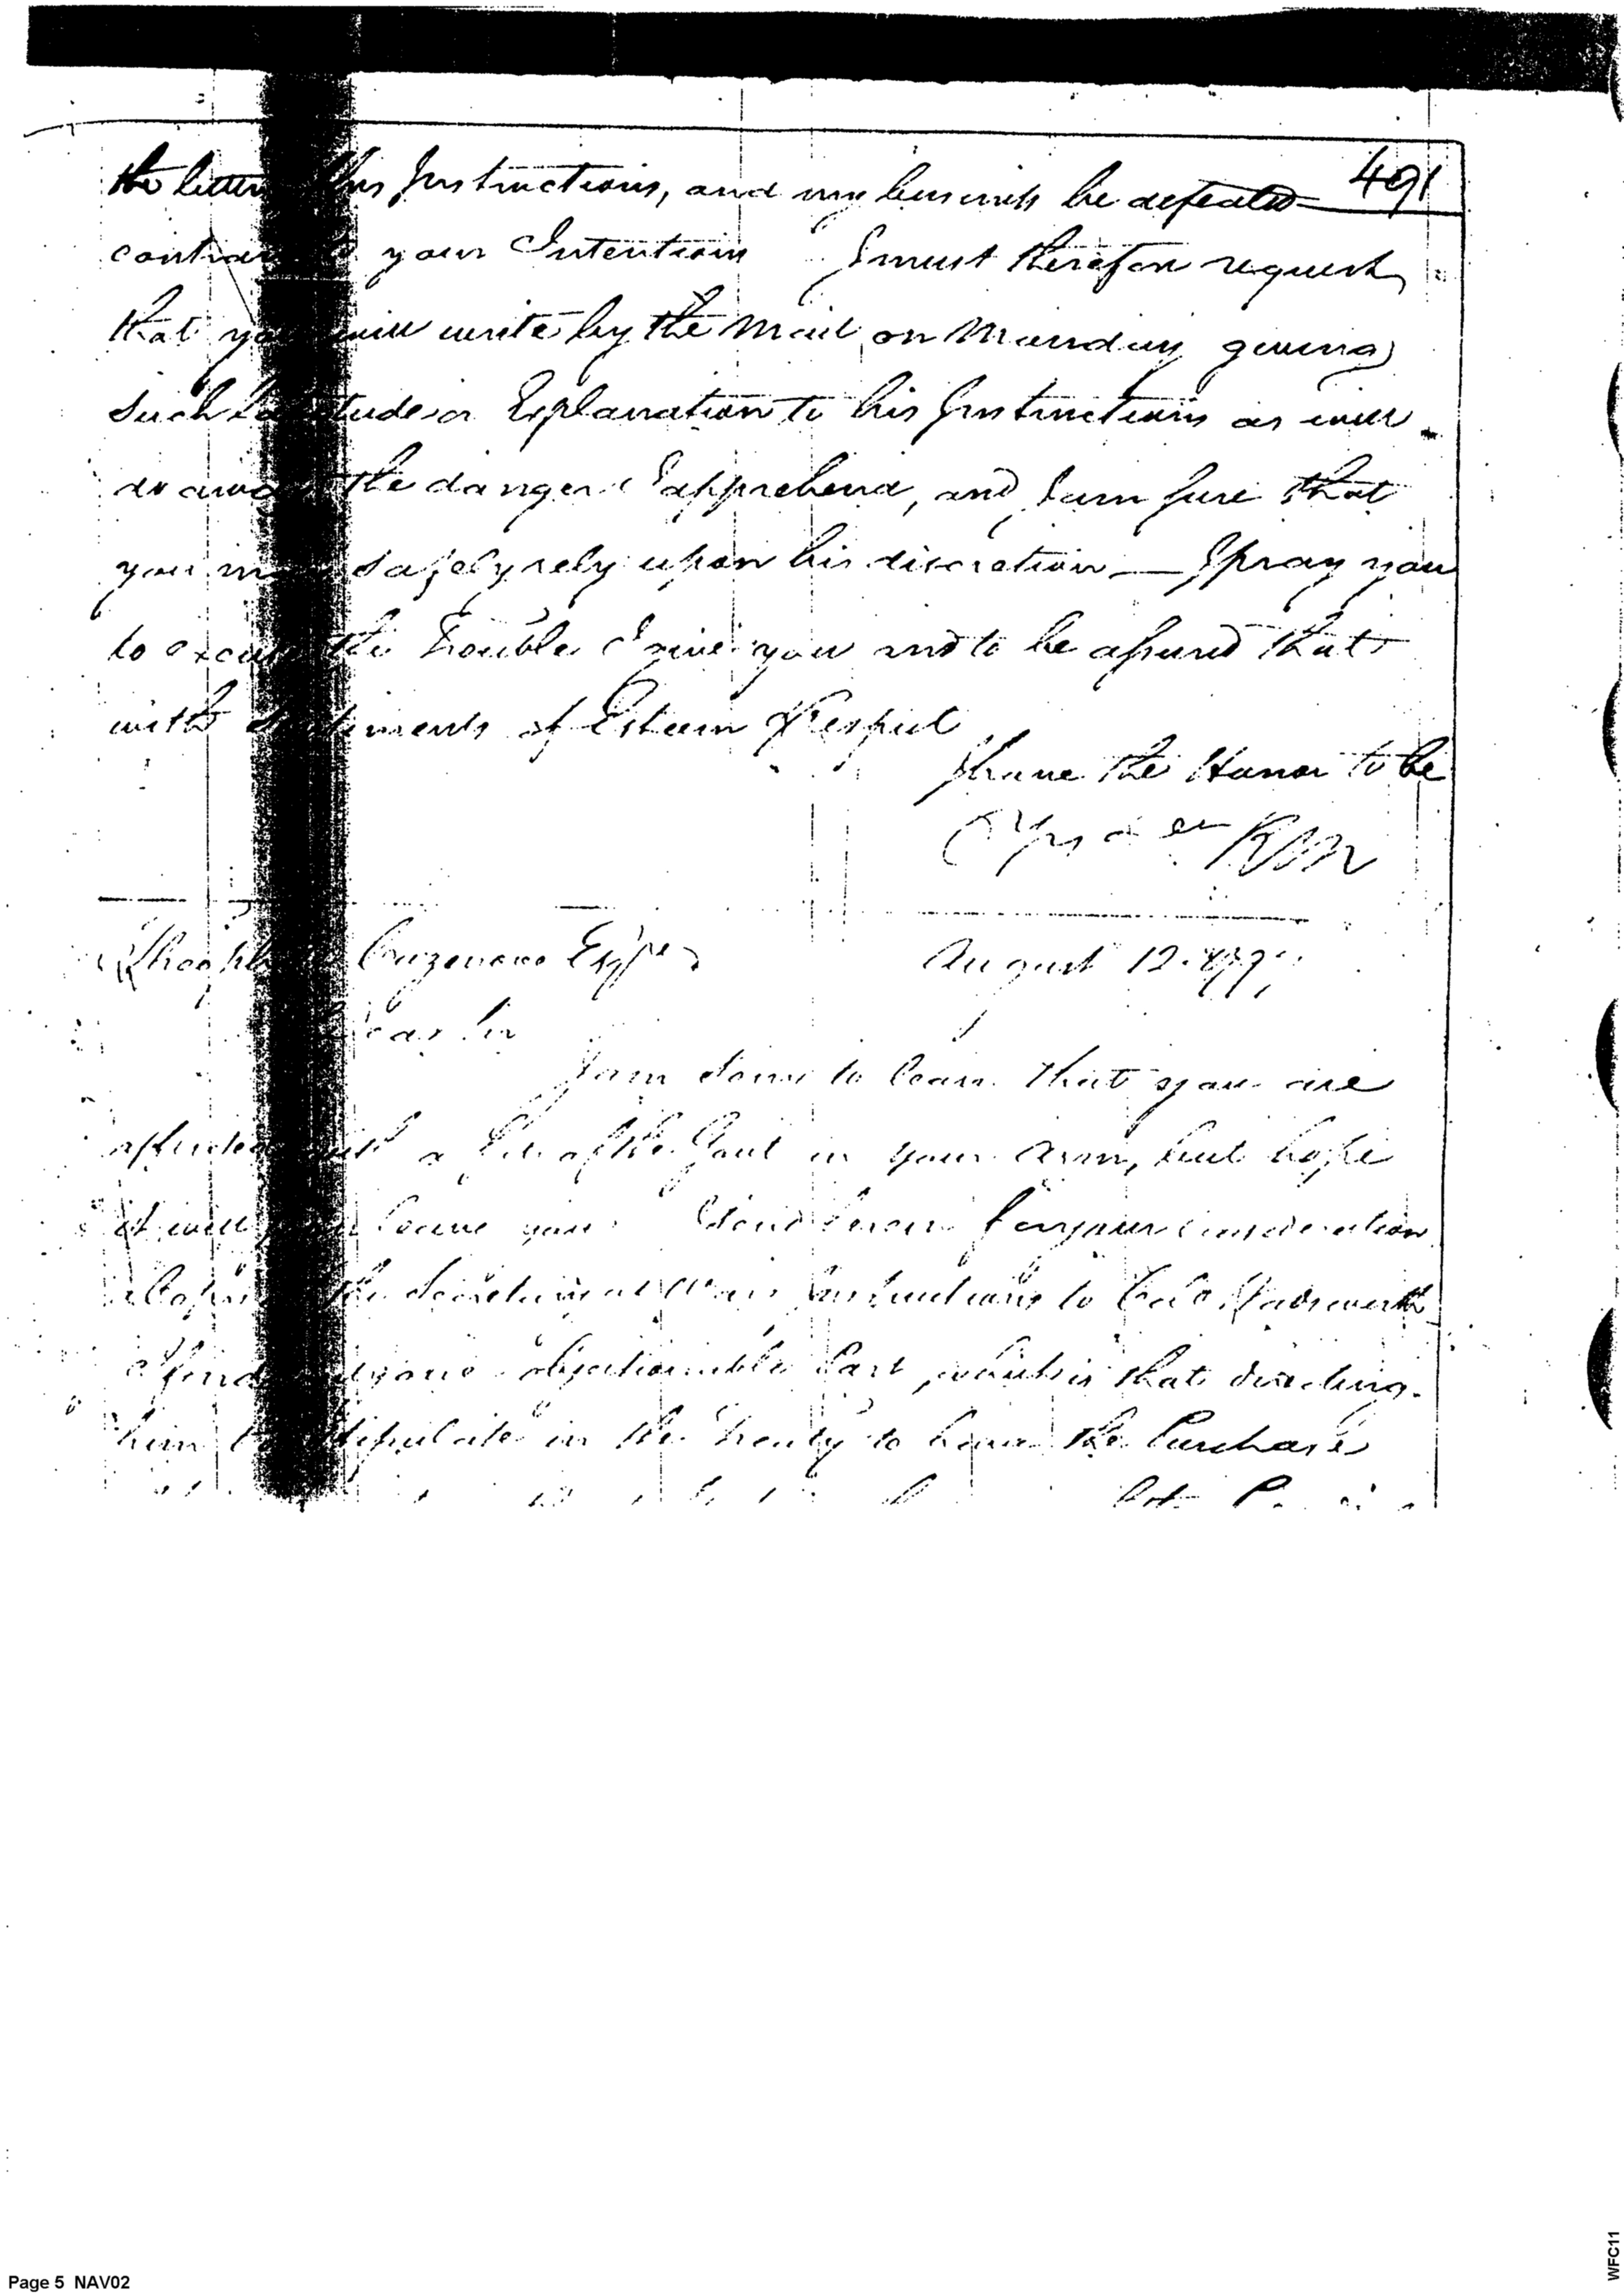 491
the letter his Instructions, and my business be defeated
your Intentions I must therefore request
that you will write by the Mail on Monday giving
such Explanation to his Instructions as will
do away the danger I apprehend, and I am sure that
you may safely rely upon his discretion — I pray you
to excuse the Trouble I give you and to be assured that
with of Esteem & Respect
I have the Honor to be
RM
Cazenove Esqre
August 12. 1797
Dear Sir
I am to learn that you are
afflicted with a Fit of the Gout in your Arm, but hope
it will leave you. for your consideration
the Instructions to Wadsworth
I find one objectionable Part, which is that directing
him to stipulate in the Treaty to have the Purchase
Page 5 NAV02
WFC11